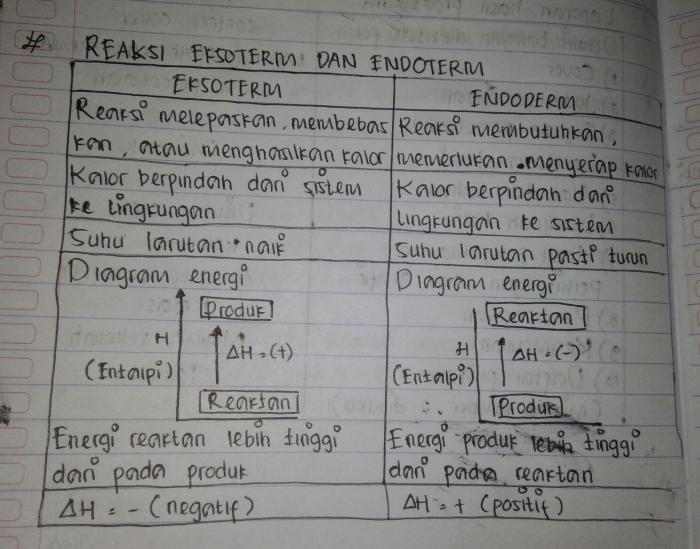 # REAKSI EKSOTERM DAN ENDOTERM
EKSOTERM
Reaksi melepaskan, membebas
kan, atau menghasilkan kalor
Kalor berpindah dari sistem
ke lingkungan
Suhu larutan naik
Diagram energi
Produk
H
(Entalpi)
ΔH = (+)
Reaktan
Energi reaktan lebih tinggi
dari pada produk
ΔH = - (negatif)
ENDODERM
Reaksi membutuhkan,
memerlukan menyerap kalor
Kalor berpindah dari
lingkungan ke sistem
Suhu larutan pasti turun
Diagram energi
Reaktan
H
(Entalpi)
ΔH = (-)
Produk
Energi produk lebih tinggi
dari pada reaktan
ΔH = + (positif)